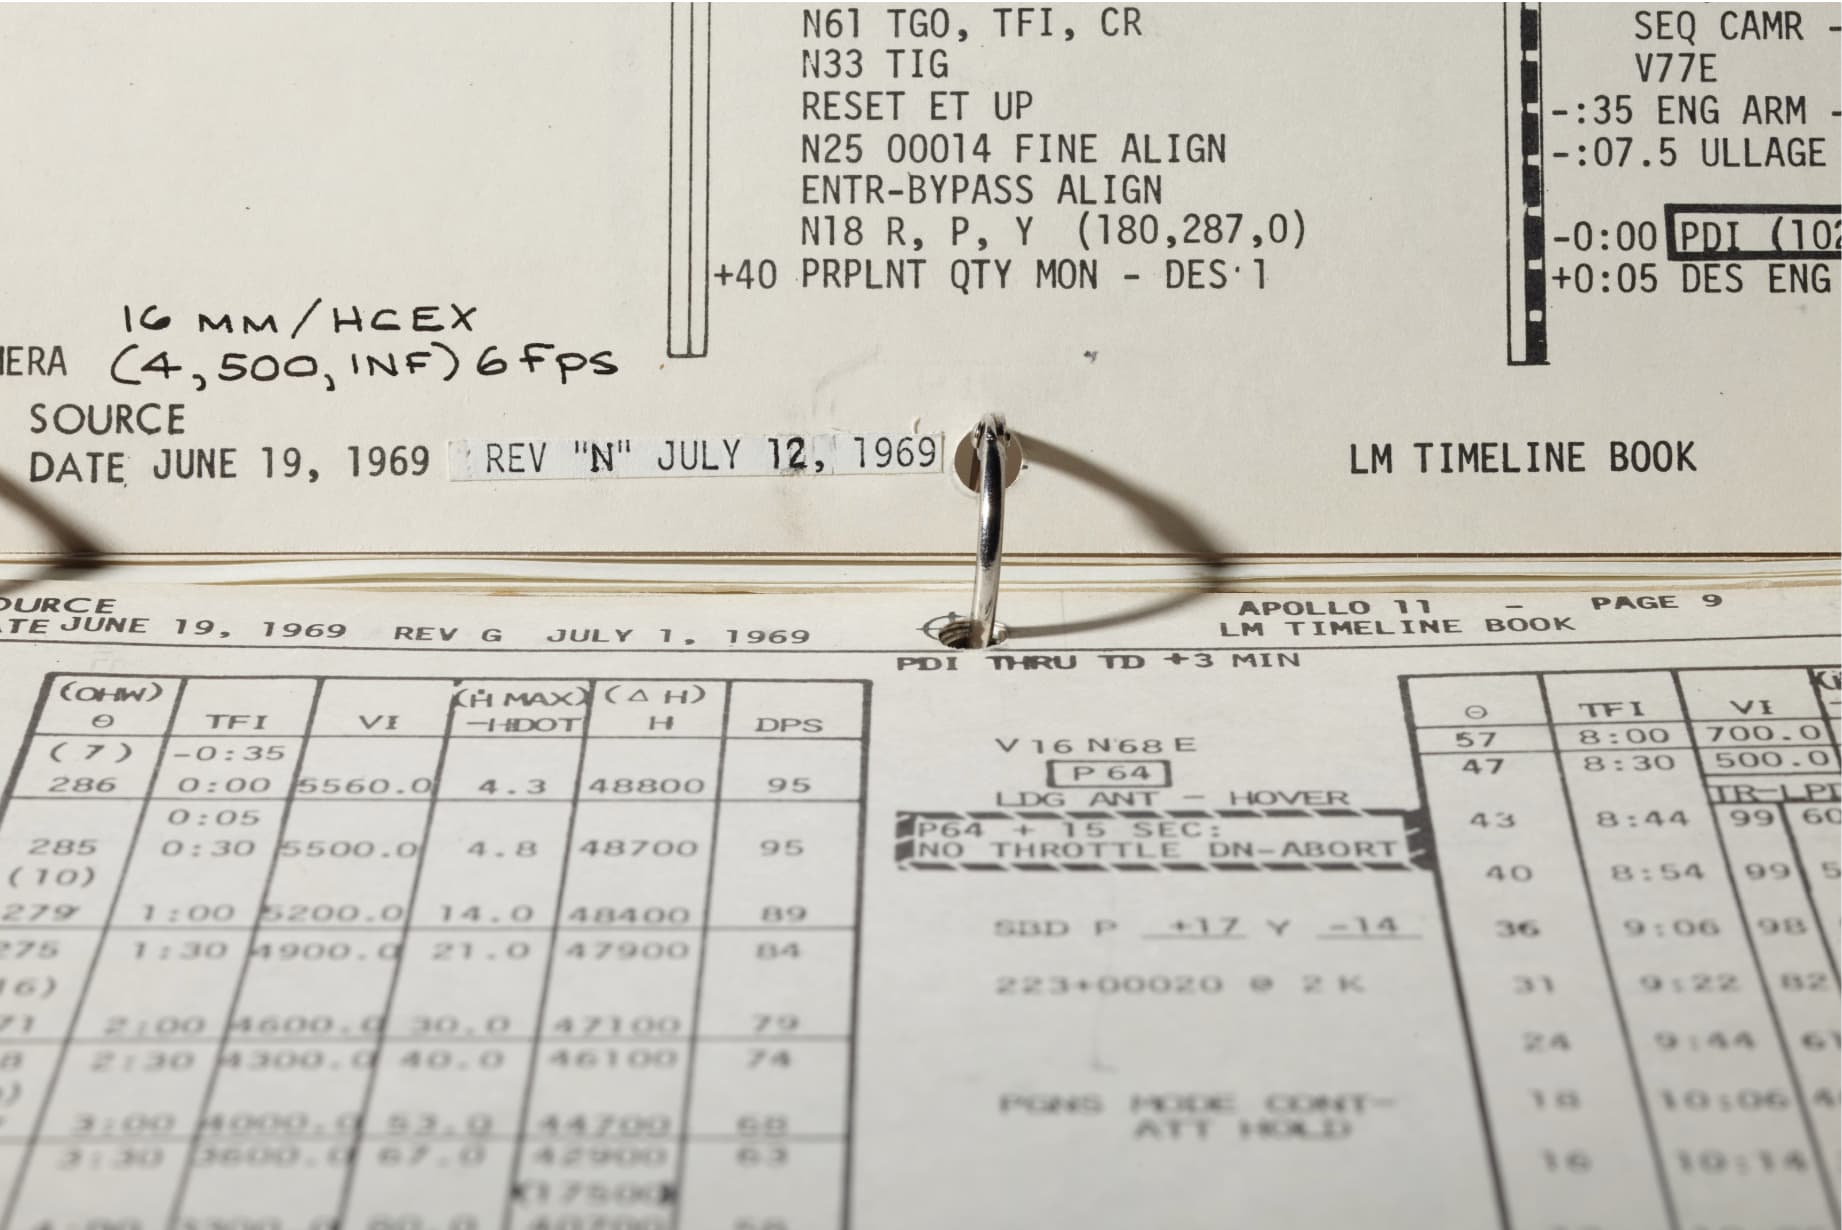 N61 TGO, TFI, CR
N33 TIG
RESET ET UP
N25 00014 FINE ALIGN
ENTR-BYPASS ALIGN
N18 R, P, Y (180,287,0)
+40 PRPLNT QTY MON - DES 1
SEQ CAMR -
V77E
-:35 ENG ARM -
-:07.5 ULLAGE
-0:00 PDI (102
+0:05 DES ENG
16 MM/HCEX
ERA (4,500,INF) 6 fps
SOURCE
DATE JUNE 19, 1969 REV "N" JULY 12, 1969
LM TIMELINE BOOK
OURCE
TE JUNE 19, 1969 REV G JULY 1, 1969
APOLLO 11 - PAGE 9
LM TIMELINE BOOK
PDI THRU TD +3 MIN
(OHW) (Ḣ MAX) (Δ H)
Θ TFI VI -HDOT H DPS
(7) -0:35
286 0:00 5560.0 4.3 48800 95
0:05
285 0:30 5500.0 4.8 48700 95
(10)
279 1:00 5200.0 14.0 48400 89
275 1:30 4900.0 21.0 47900 84
16)
71 2:00 4600.0 30.0 47100 79
8 2:30 4300.0 40.0 46100 74
3:00 4000.0 53.0 44700 68
3:30 3600.0 67.0 42900 63
(17500)
V 16 N68 E
P 64
LDG ANT - HOVER
P64 + 15 SEC:
NO THROTTLE DN-ABORT
SBD P +17 Y -14
223+00020 @ 2 K
PGNS MODE CONT-
ATT HOLD
Θ TFI VI
57 8:00 700.0
47 8:30 500.0
TR-LPD
43 8:44 99 60
40 8:54 99 5
36 9:06 98
31 9:22 82
24 9:44 61
18 10:06 4
16 10:14